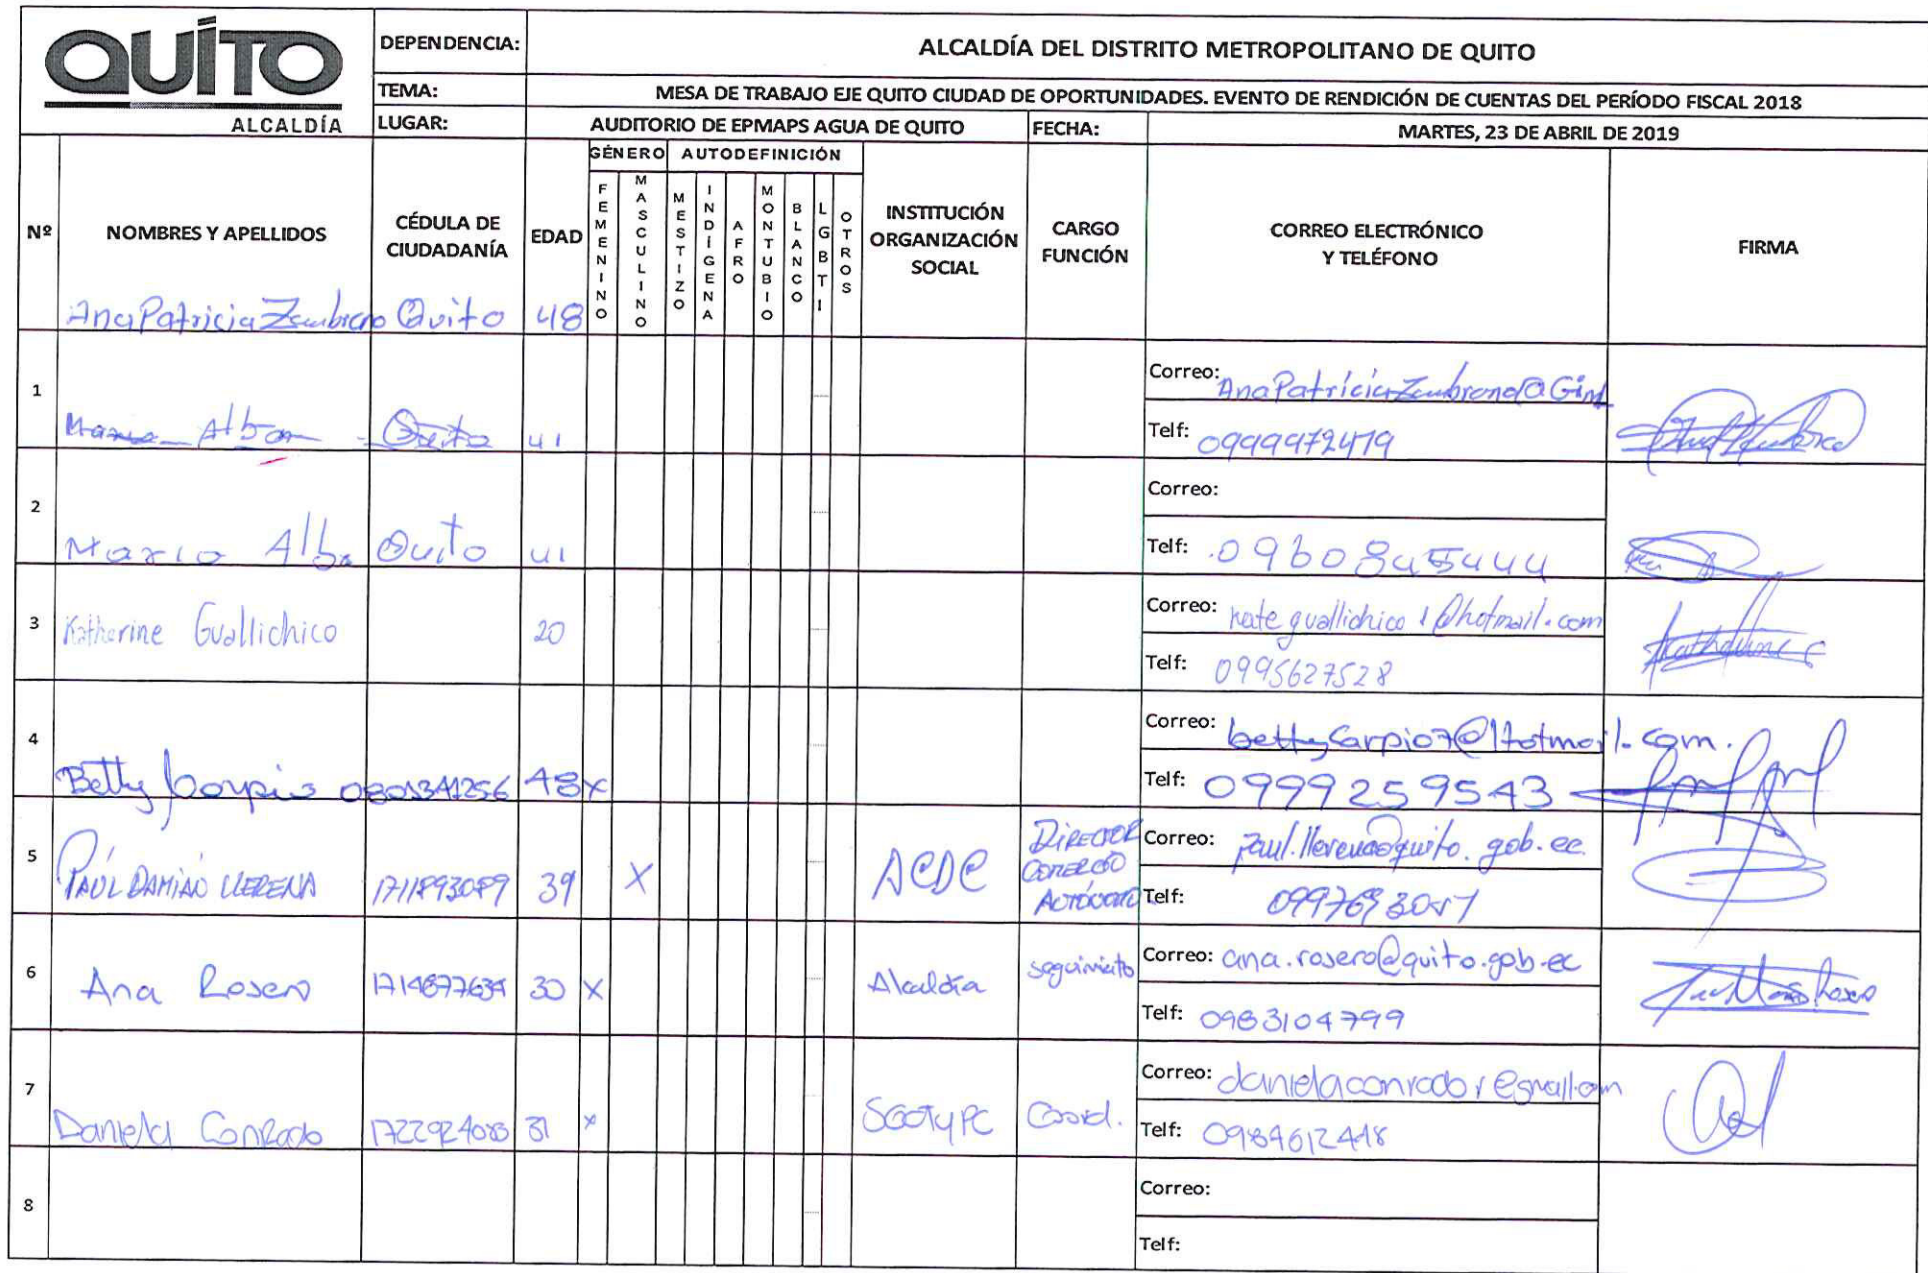 QUÍTO
ALCALDÍA
DEPENDENCIA:
ALCALDÍA DEL DISTRITO METROPOLITANO DE QUITO
TEMA:
MESA DE TRABAJO EJE QUITO CIUDAD DE OPORTUNIDADES. EVENTO DE RENDICIÓN DE CUENTAS DEL PERÍODO FISCAL 2018
LUGAR:
AUDITORIO DE EPMAPS AGUA DE QUITO
FECHA:
MARTES, 23 DE ABRIL DE 2019
Nº
NOMBRES Y APELLIDOS
CÉDULA DE
CIUDADANÍA
EDAD
GÉNERO
FEMENINO
MASCULINO
AUTODEFINICIÓN
MESTIZO
INDÍGENA
AFRO
MONTUBIO
BLANCO
LGBTI
OTROS
INSTITUCIÓN
ORGANIZACIÓN
SOCIAL
CARGO
FUNCIÓN
CORREO ELECTRÓNICO
Y TELÉFONO
FIRMA
Ana Patricia Zambrano Quito 48
1
Correo: AnaPatriciaZambrano@Gim
Maria Alban Quito 41
Telf: 0999972479
2
Correo:
Maria Alba Quito 41
Telf: 0960845444
3
Katherine Guallichico 20
Correo: kate guallichico 1@hotmail.com
Telf: 0995627528
4
Correo: bettycarpio7@Hotmail.com.
Betty Carpio 0801341256 48 X
Telf: 0999259543
5
PAÚL DAMIÁN LLERENA 1711893089 39 X
ACDC
DIRECTOR
COMERCIO
AUTÓNOMO
Correo: paul.llerena@quito.gob.ec
Telf:
6
Ana Rosero 1714877634 30 X
Alcaldía
seguimiento
Correo: ana.rosero@quito.gob.ec
Telf: 0983104799
7
Daniela Conrado 31 x
SGCTyPC
Coord.
Correo: danielaconrador@gmail.com
Telf: 0984612418
8
Correo:
Telf: